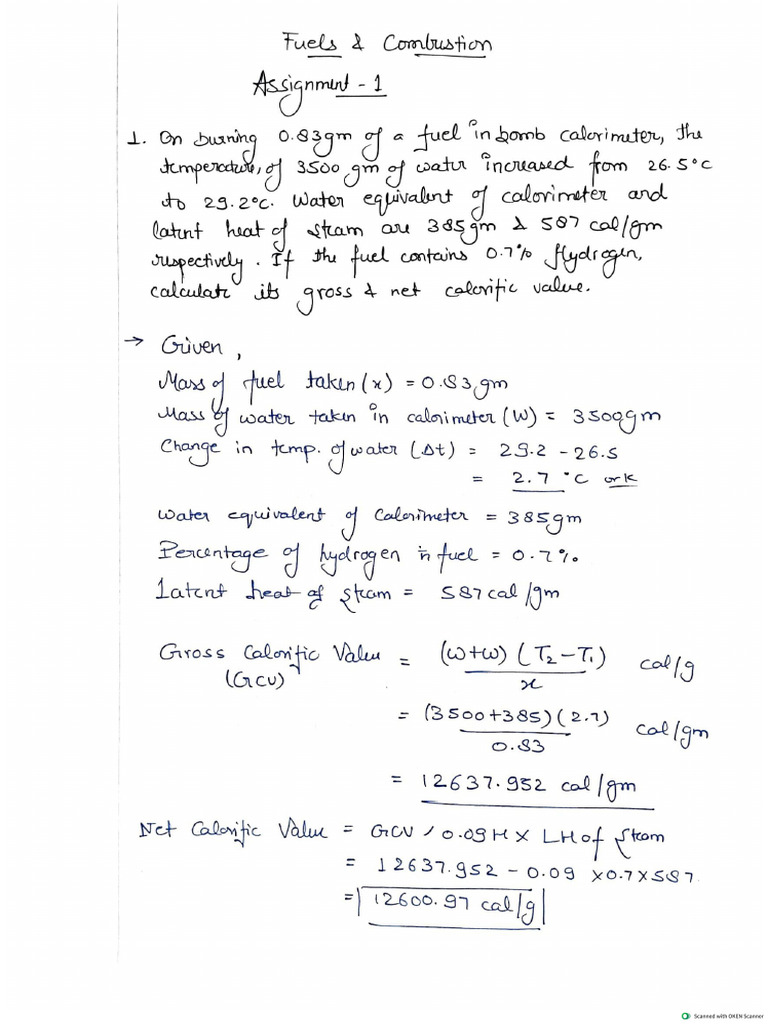 Fuels & Combustion
Assignment - 1
1. On burning 0.83gm of a fuel in bomb calorimeter, the
temperature, of 3500 gm of water increased from 26.5°C
to 29.2°C. Water equivalent of calorimeter and
latent heat of steam are 385gm & 587 cal/gm
respectively. If the fuel contains 0.7% Hydrogen,
calculate its gross & net calorific value.
→ Given,
Mass of fuel taken (x) = 0.83 gm
Mass of water taken in calorimeter (W) = 3500gm
Change in temp. of water (Δt) = 29.2 - 26.5
= 2.7 °C or K
Water equivalent of Calorimeter = 385gm
Percentage of hydrogen in fuel = 0.7%
Latent heat of steam = 587 cal/gm
Gross Calorific Value = (W+w) (T2-T1) cal/g
(GCV) x
= (3500+385)(2.7) cal/gm
0.83
= 12637.952 cal/gm
Net Calorific Value = GCV - 0.09H X LH of Steam
= 12637.952 - 0.09 X0.7X587
= 12600.97 cal/g
Scanned with OKEN Scanner